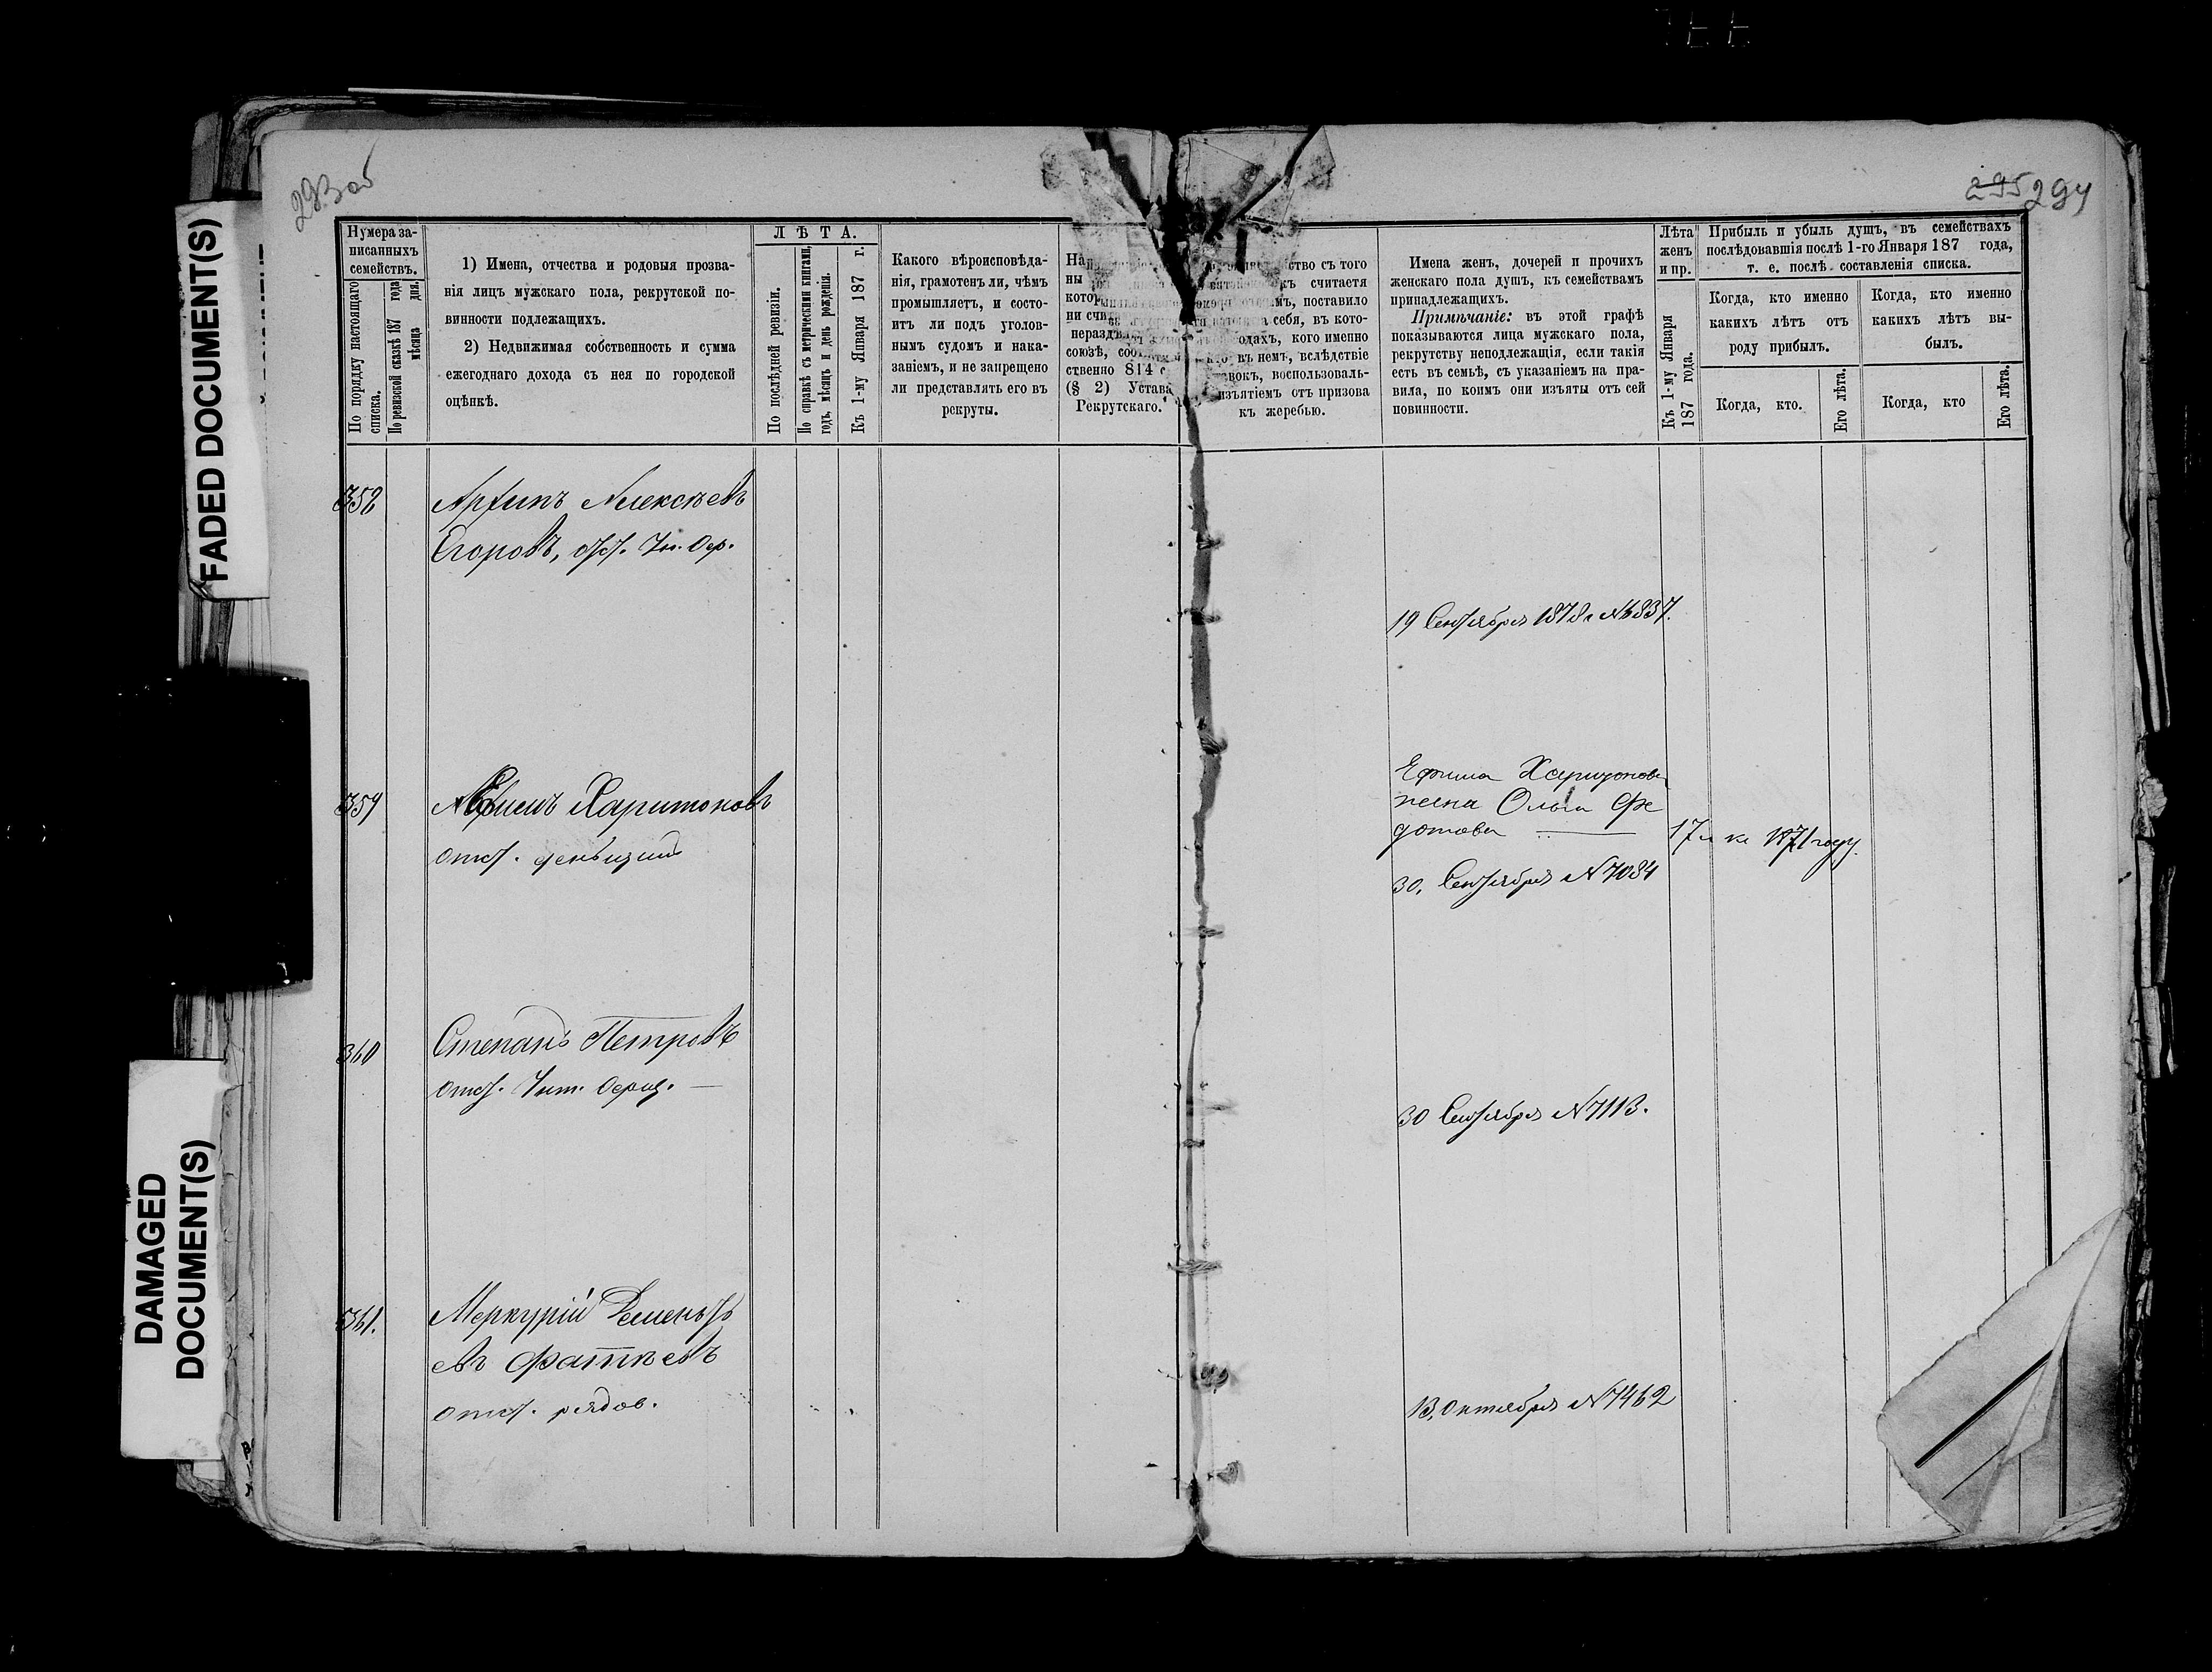 293 об
295 294
FADED DOCUMENT(S)
DAMAGED
DOCUMENT(S)
Нумера за-
писанныхъ
семействъ.
По порядку настоящаго
списка.
По ревизской сказкѣ 187 года
мѣсяца дня.
1) Имена, отчества и родовыя прозва-
нія лицъ мужскаго пола, рекрутской по-
винности подлежащихъ.
2) Недвижимая собственность и сумма
ежегоднаго дохода съ нея по городской
оцѣнкѣ.
ЛѢТА.
По послѣдней ревизіи.
По справкѣ съ метрическими книгами,
годъ, мѣсяцъ и день рожденія.
Къ 1-му Января 187 г.
Какого вѣроисповѣда-
нія, грамотенъ ли, чѣмъ
промышляетъ, и состо-
итъ ли подъ уголов-
нымъ судомъ и нака-
заніемъ, и не запрещено
ли представлять его въ
рекруты.
союзѣ,
ственно 814
(§ 2) Устава
Рекрутскаго.
ство съ того
считается
поставило
себя, въ кото-
одахъ, кого именно
въ немъ, вслѣдствіе
воспользоваль-
изъятіемъ отъ призова
къ жеребью.
Имена женъ, дочерей и прочихъ
женскаго пола душъ, къ семействамъ
принадлежащихъ.
Примѣчаніе: въ этой графѣ
показываются лица мужскаго пола,
рекрутству неподлежащія, если такія
есть въ семьѣ, съ указаніемъ на пра-
вила, по коимъ они изъяты отъ сей
повинности.
Лѣта
женъ
и пр.
Къ 1-му Января
187 года.
Прибыль и убыль душъ, въ семействахъ
послѣдовавшія послѣ 1-го Января 187 года,
т. е. послѣ составленія списка.
Когда, кто именно
какихъ лѣтъ отъ
роду прибылъ.
Когда, кто именно
какихъ лѣтъ вы-
былъ.
Когда, кто.
Его лѣта.
Когда, кто
Его лѣта.
352
Архипъ Алексѣевъ
Егоровъ, отст. Ун. Оф.
19 Сентября 1878 г №6837.
359
Ефимъ Харитоновъ
отст. деньщикъ
Ефима Харитонова
жена Ольга Фе
дотова
17 л къ 1871 году.
30, Сентября №7084
360
Степанъ Петровъ
отст. Унт. Офиц.
30 Сентября №7113.
361.
Меркурій Деменьть
евъ Фатѣевъ
отст. рядов.
13, Октября №7462